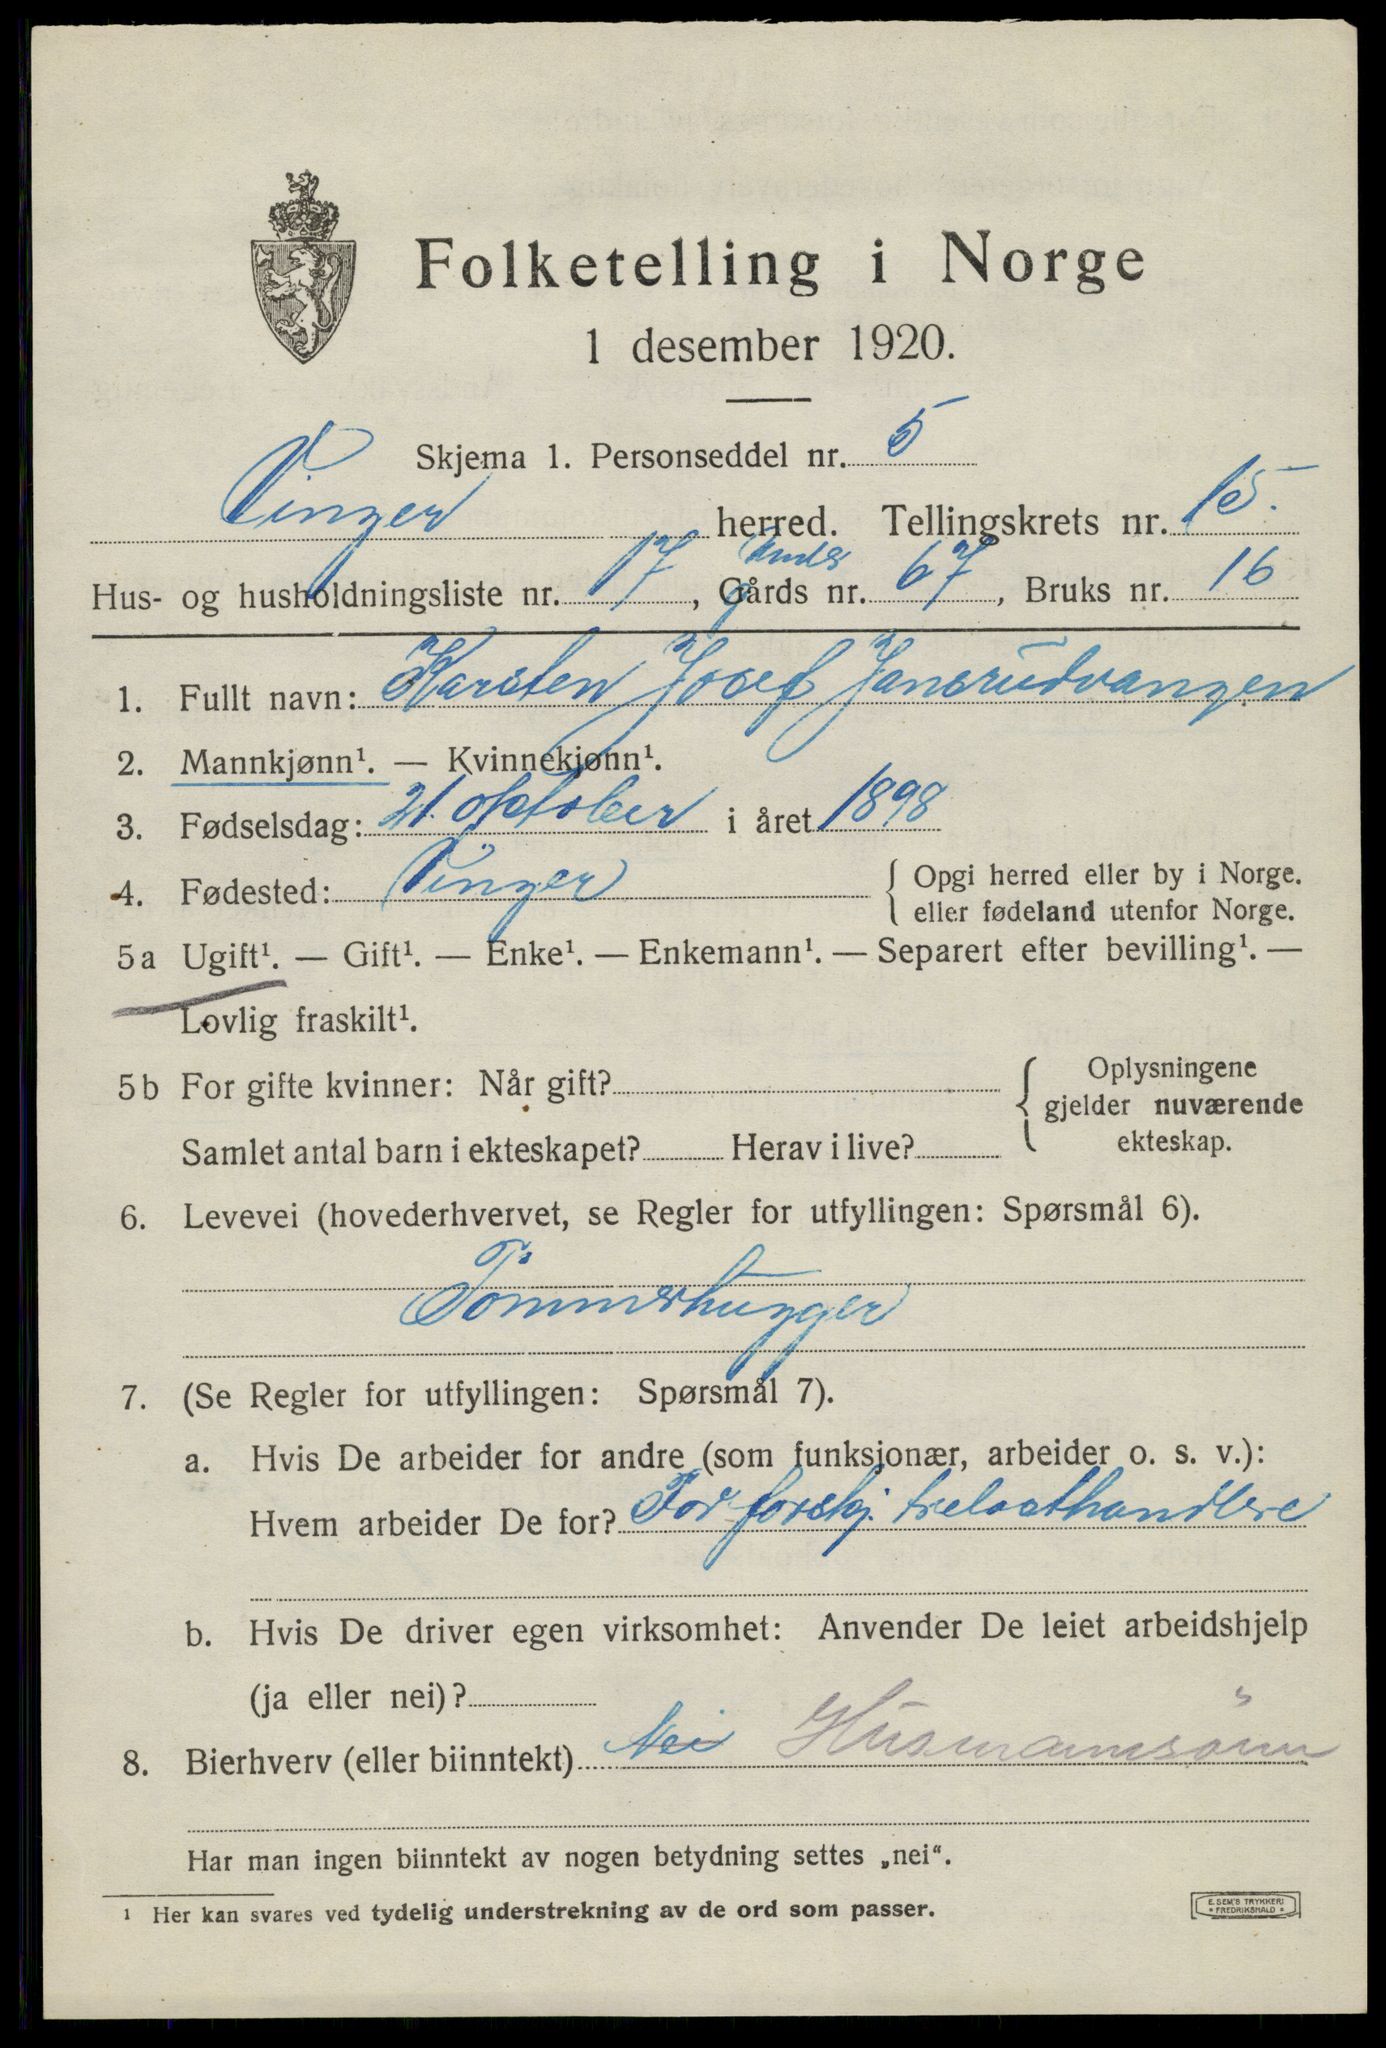 Folketelling i Norge
1 desember 1920.
Skjema 1. Personseddel nr. 5
Vinger herred. Tellingskrets nr. 15.
Hus- og husholdningsliste nr. 17, Gårds nr. 67, Bruks nr. 16
1. Fullt navn: Karsten Josef Jansrudvangen
2. Mannkjønn¹. — Kvinnekjønn¹.
3. Fødselsdag: 21. oktober i året 1898
4. Fødested: Vinger { Opgi herred eller by i Norge.
eller fødeland utenfor Norge.
5a Ugift¹. — Gift¹. — Enke¹. — Enkemann¹. — Separert efter bevilling¹. —
Lovlig fraskilt¹.
5b For gifte kvinner: Når gift? { Oplysningene
gjelder nuværende
ekteskap.
Samlet antal barn i ekteskapet? Herav i live?
6. Levevei (hovederhvervet, se Regler for utfyllingen: Spørsmål 6).
Tømmerhugger
7. (Se Regler for utfyllingen: Spørsmål 7).
a. Hvis De arbeider for andre (som funksjonær, arbeider o. s. v.):
Hvem arbeider De for? For forskj. trelasthandlere
b. Hvis De driver egen virksomhet: Anvender De leiet arbeidshjelp
(ja eller nei)?
8. Bierhverv (eller biinntekt) Nei Husmannsönn
Har man ingen biinntekt av nogen betydning settes „nei“.
¹ Her kan svares ved tydelig understrekning av de ord som passer.
E. SEM'S TRYKKERI
* FREDRIKSHALD *